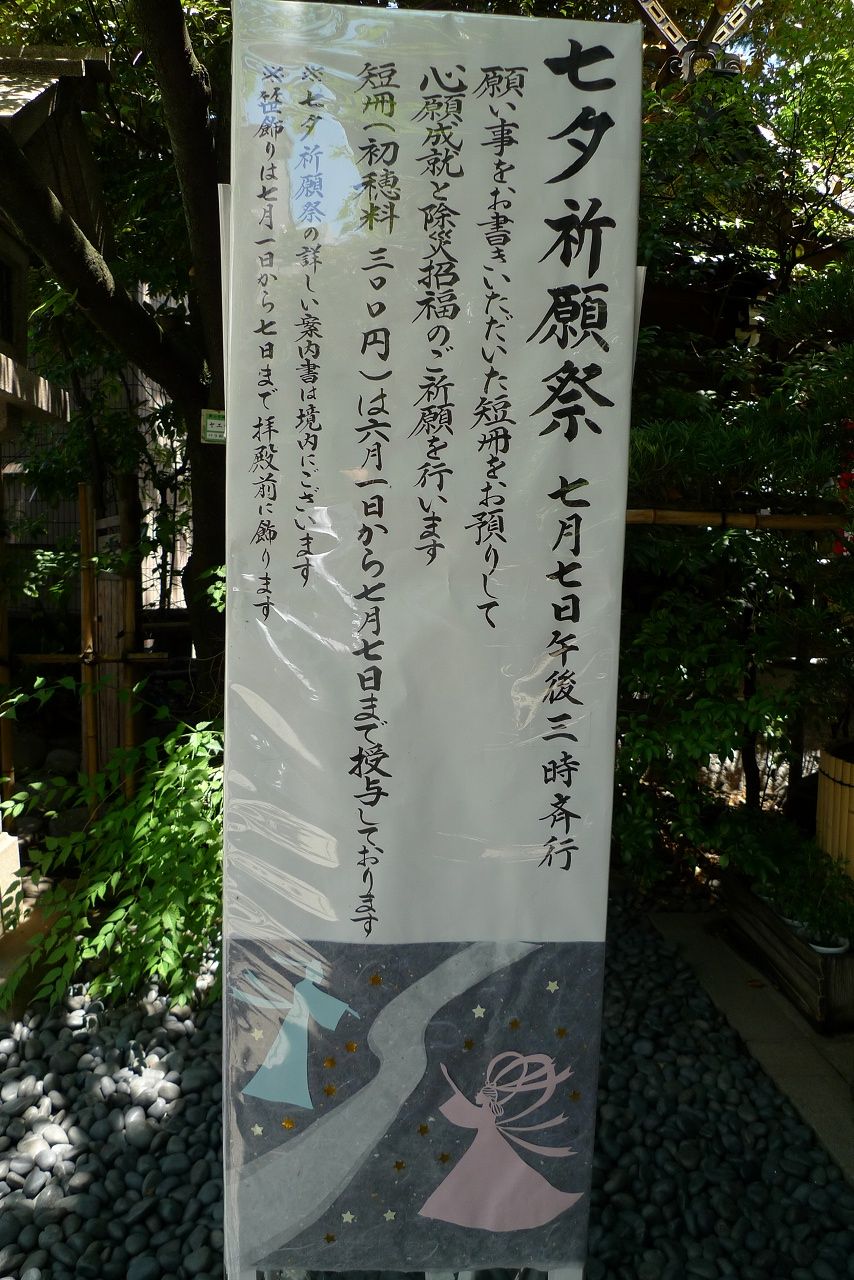 七夕祈願祭 七月七日午後三時斉行
願い事をお書きいただいた短冊をお預りして
心願成就と除災招福のご祈願を行います
短冊(初穂料 三〇〇円)は六月一日から七月七日まで授与しております
※七夕祈願祭の詳しい案内書は境内にございます
※笹飾りは七月一日から七日まで拝殿前に飾ります